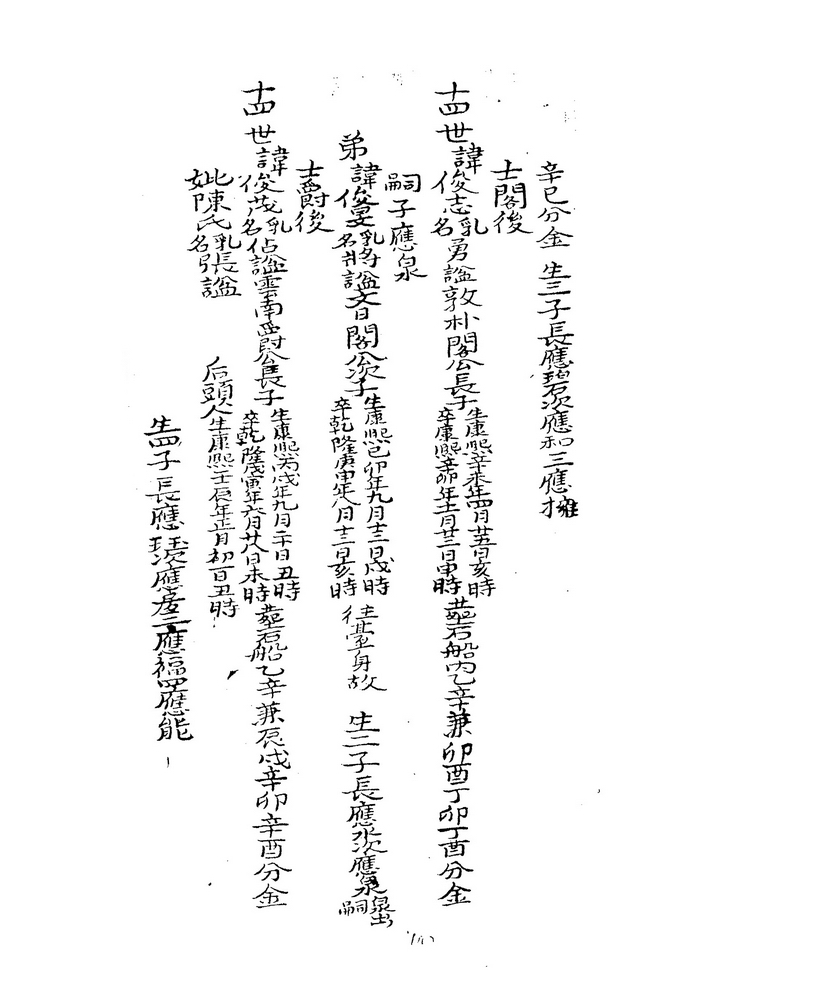 辛巳分金 生三子長應碧次應和三應擁
士閣後
十四世諱俊志乳名勇諡敦朴閣公長子 生康熙辛未年四月廿五日亥時 卒康熙辛卯年十一月廿三日申時 葬石船內乙辛兼卯酉丁卯丁酉分金
嗣子應泉
弟諱俊旻乳名將諡文日閣公次子 生康熙己卯年九月十三日戌時 卒乾隆庚申年八月十三日亥時 往臺身故 生二子長應水次應泉泉出嗣
士爵後
十四世諱俊茂乳名佔諡雲南爵公長子 生康熙丙戌年九月二十日丑時 卒乾隆戊寅年六月廿八日未時 葬石船乙辛兼辰戌辛卯辛酉分金
妣陳氏乳名張諡 后頭人 生康熙壬辰年正月初一日丑時
生四子長應 次應 三應福四應能